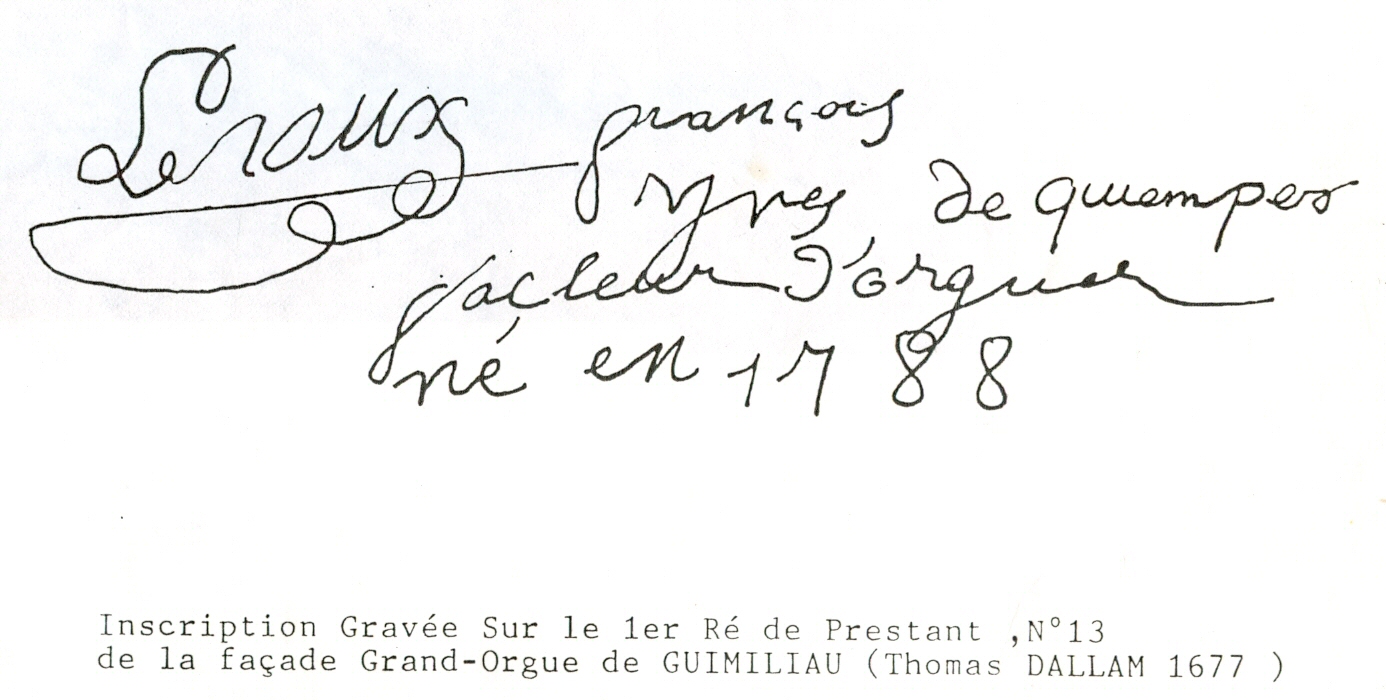 Leroux françois
yves de quemper
facteur d'orgue
né en 1788
Inscription Gravée Sur le 1er Ré de Prestant ,N°13
de la façade Grand-Orgue de GUIMILIAU (Thomas DALLAM 1677 )